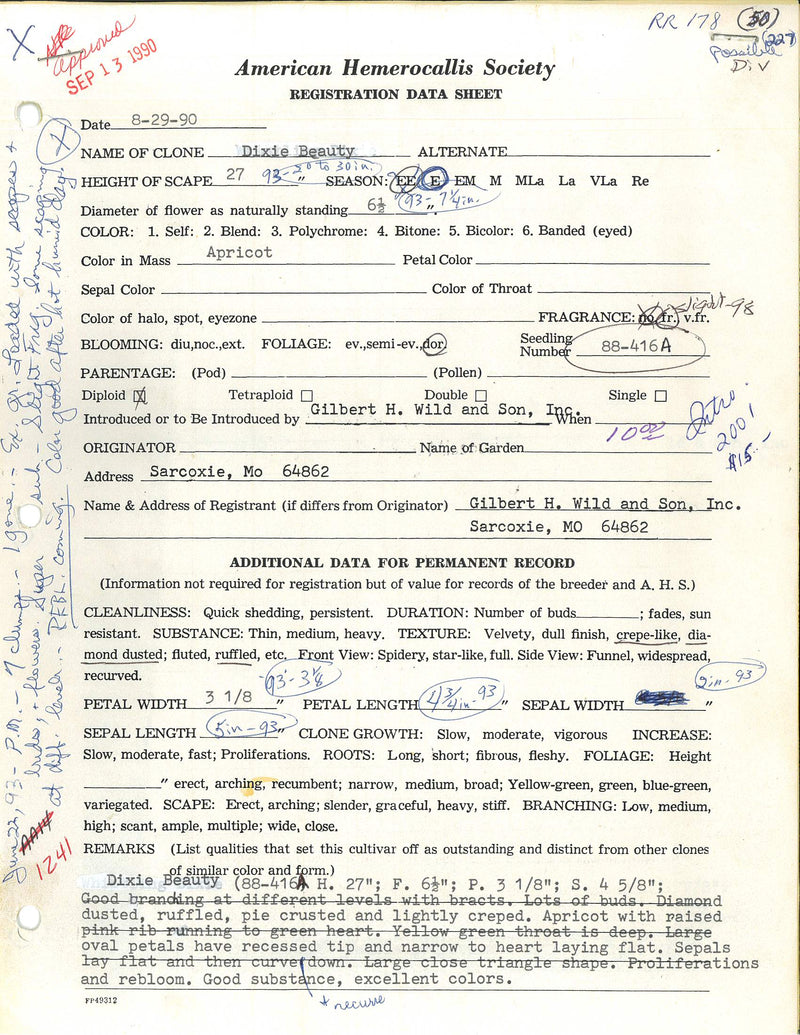 RR 178 (50)
(227)
possible
Div
X
Approved
SEP 13 1990
American Hemerocallis Society
REGISTRATION DATA SHEET
Date 8-29-90
NAME OF CLONE Dixie Beauty ALTERNATE
HEIGHT OF SCAPE 27 " 93- 30 in. SEASON: EE E EM M MLa La VLa Re
Diameter of flower as naturally standing 6½ " 93- 7¼ in.
COLOR: 1. Self: 2. Blend: 3. Polychrome: 4. Bitone: 5. Bicolor: 6. Banded (eyed)
Color in Mass Apricot Petal Color
Sepal Color Color of Throat
slight-98
Color of halo, spot, eyezone FRAGRANCE: no, fr., v.fr.
BLOOMING: diu,noc.,ext. FOLIAGE: ev.,semi-ev.,dor. Seedling Number 88-416A
PARENTAGE: (Pod) (Pollen)
Diploid X Tetraploid Double Single
Introduced or to Be Introduced by Gilbert H. Wild and Son, Inc. When
10.00 Intro. 2001 $15.-
ORIGINATOR Name of Garden
Address Sarcoxie, Mo 64862
Name & Address of Registrant (if differs from Originator) Gilbert H. Wild and Son, Inc.
Sarcoxie, MO 64862
ADDITIONAL DATA FOR PERMANENT RECORD
(Information not required for registration but of value for records of the breeder and A. H. S.)
CLEANLINESS: Quick shedding, persistent. DURATION: Number of buds ; fades, sun
resistant. SUBSTANCE: Thin, medium, heavy. TEXTURE: Velvety, dull finish, crepe-like, dia-
mond dusted; fluted, ruffled, etc. Front View: Spidery, star-like, full. Side View: Funnel, widespread,
recurved. 93-3⅛ 2in-93
PETAL WIDTH 3 1/8 " PETAL LENGTH 4¾ in-93 " SEPAL WIDTH "
SEPAL LENGTH 5in-93 " CLONE GROWTH: Slow, moderate, vigorous INCREASE:
Slow, moderate, fast; Proliferations. ROOTS: Long, short; fibrous, fleshy. FOLIAGE: Height
" erect, arching, recumbent; narrow, medium, broad; Yellow-green, green, blue-green,
variegated. SCAPE: Erect, arching; slender, graceful, heavy, stiff. BRANCHING: Low, medium,
high; scant, ample, multiple; wide, close.
REMARKS (List qualities that set this cultivar off as outstanding and distinct from other clones
of similar color and form.)
Dixie Beauty (88-416A H. 27"; F. 6½"; P. 3 1/8"; S. 4 5/8";
Good branding at different levels with bracts. Lots of buds. Diamond
dusted, ruffled, pie crusted and lightly creped. Apricot with raised
pink rib running to green heart. Yellow green throat is deep. Large
oval petals have recessed tip and narrow to heart laying flat. Sepals
lay flat and then curve down. Large close triangle shape. Proliferations
and rebloom. Good substance, excellent colors.
* recurve
FP49312
June 22, 93 - P.M. - 7 clumps. - 1 gone. - Ex. gr. Loaded with scapes +
buds, + flowers. Super sub - Slight Frag. Some scaping
at diff. levels. - REBL. coming. Color good after hot humid day.
1241